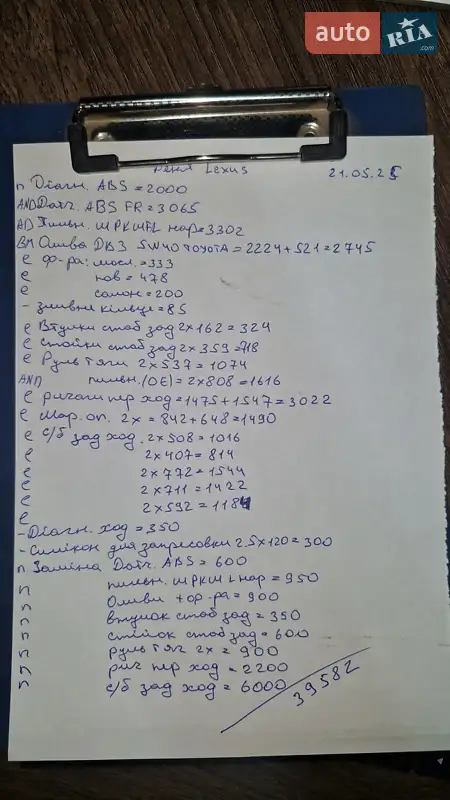 auto RIA .com
Lexus 21.05.25
П Діагн. ABS = 2000
AND Датч. ABS FR = 3065
AD Пильн. ШРКШ FL нар = 3302
BM Олива ДВЗ 5W40 TOYOTA = 2224 + 521 = 2745
е ф-ра: мосл. = 333
е пов = 478
е салон = 200
- зливне кільце = 85
е Втулки стаб зад 2 x 162 = 324
е Стойки стаб зад 2 x 359 = 718
е Руль тяги 2 x 537 = 1074
АНП пильн. (OE) = 2 x 808 = 1616
е ричаги пер ход = 1475 + 1547 = 3022
е Мар. оп. 2x = 842 + 648 = 1490
е с/б зад ход. 2 x 508 = 1016
е 2 x 407 = 814
е 2 x 772 = 1544
е 2 x 711 = 1422
е 2 x 592 = 1184
е
- Діагн. ход = 350
- Силікон для запресовки 2.5 x 120 = 300
П Заміна Датч. ABS = 600
П пильн. ШРКШ L нар = 950
П Оливи + ф-ра = 900
П втулок стаб зад = 350
П стійок стаб зад = 600
П руль тяг 2x = 900
П рич пер ход = 2200
П с/б зад ход = 6000
39582